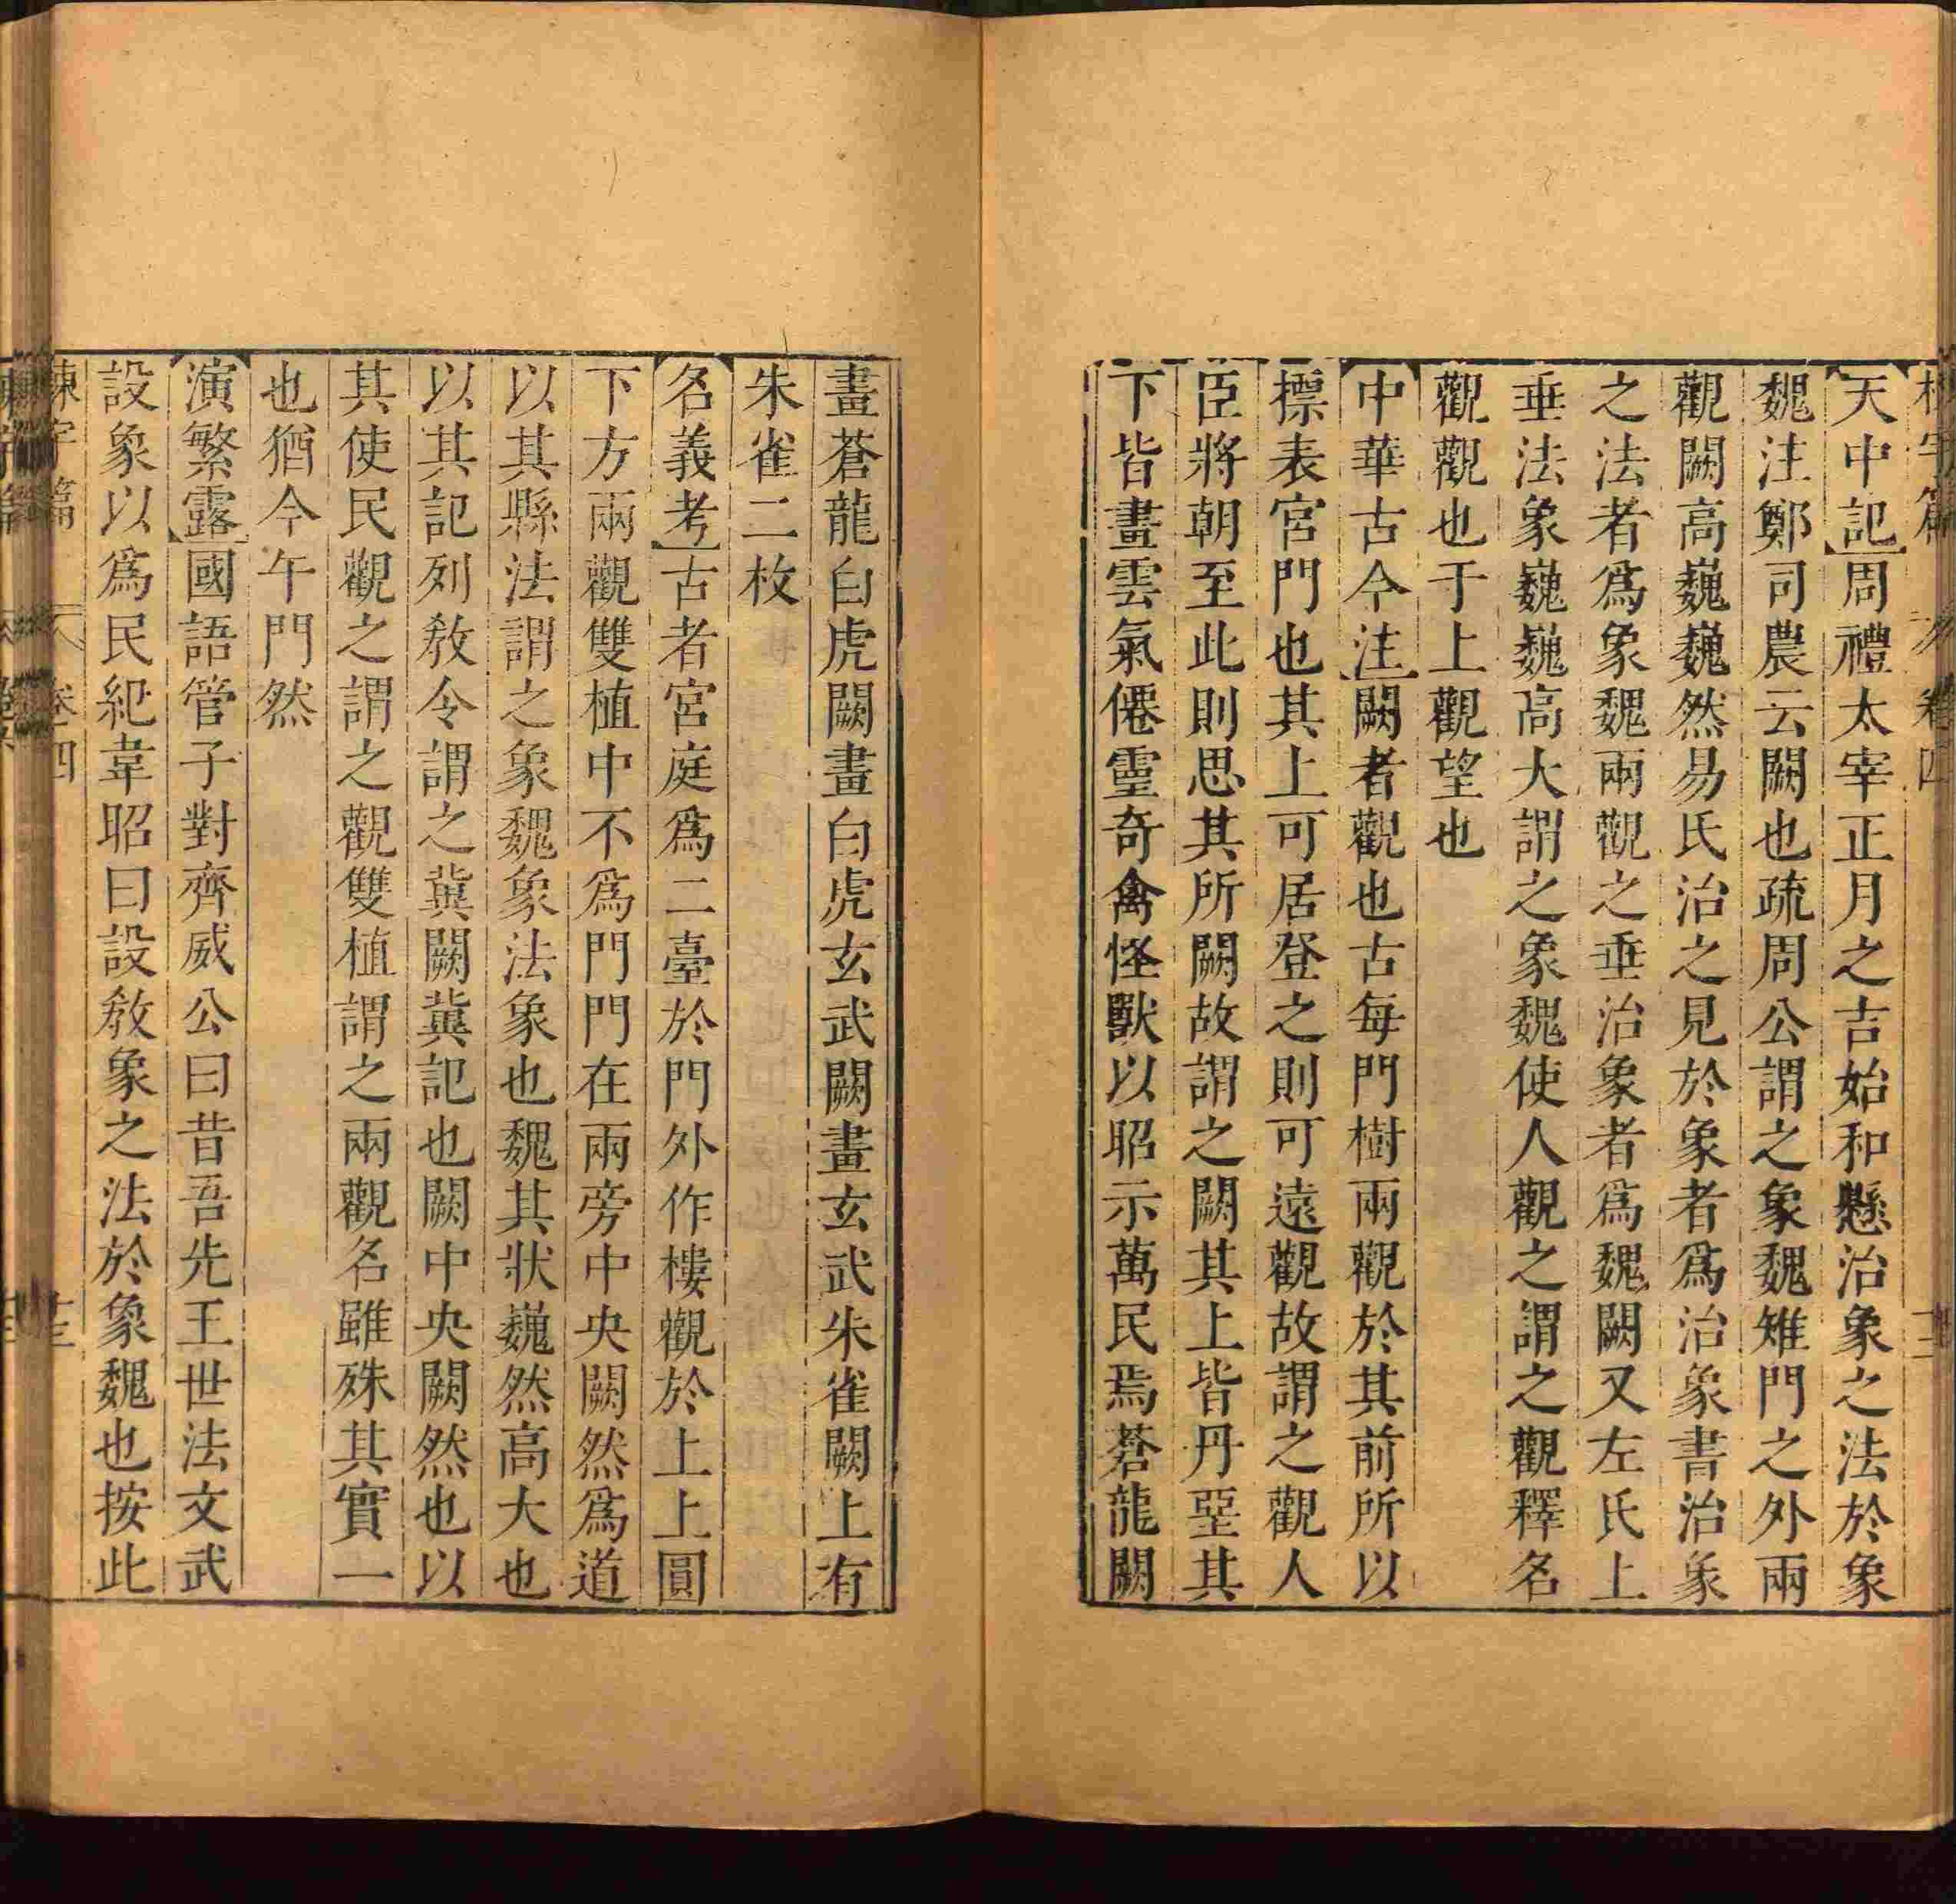 天中記周禮太宰正月之吉始和懸治象之法於象
魏注鄭司農云闕也疏周公謂之象魏雉門之外兩
觀闕高巍巍然易氏治之見於象者爲治象書治象
之法者爲象魏兩觀之垂治象者爲魏闕又左氏上
垂法象巍巍高大謂之象魏使人觀之謂之觀釋名
觀觀也于上觀望也
中華古今注闕者觀也古每門樹兩觀於其前所以
標表宮門也其上可居登之則可遠觀故謂之觀人
臣將朝至此則思其所闕故謂之闕其上皆丹堊其
下皆畫雲氣僊靈奇禽怪獸以昭示萬民焉蒼龍闕
畫蒼龍白虎闕畫白虎玄武闕畫玄武朱雀闕上有
朱雀二枚
名義考古者宮庭爲二臺於門外作樓觀於上上圓
下方兩觀雙植中不爲門門在兩旁中央闕然爲道
以其縣法謂之象魏象法象也魏其狀巍然高大也
以其記列教令謂之冀闕冀記也闕中央闕然也以
其使民觀之謂之觀雙植謂之兩觀名雖殊其實一
也猶今午門然
演繁露國語管子對齊威公曰昔吾先王世法文武
設象以爲民紀韋昭曰設教象之法於象魏也按此
卷四